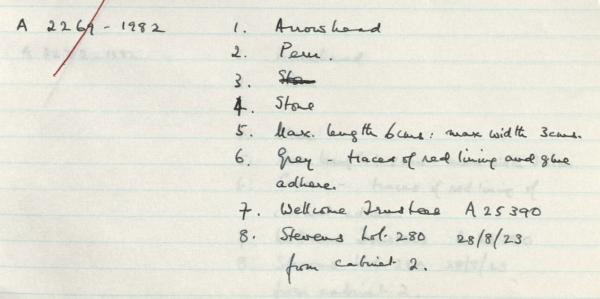 A 2269-1982 1. Arrowhead
2. Peru.
3. Stone
4. Stone
5. Max. length 6cms: max width 3cms.
6. Grey - traces of red lining and glue
adhere.
7. Wellcome Trustees A25390
8. Stevens Lot. 280 28/8/23
from cabinet 2.